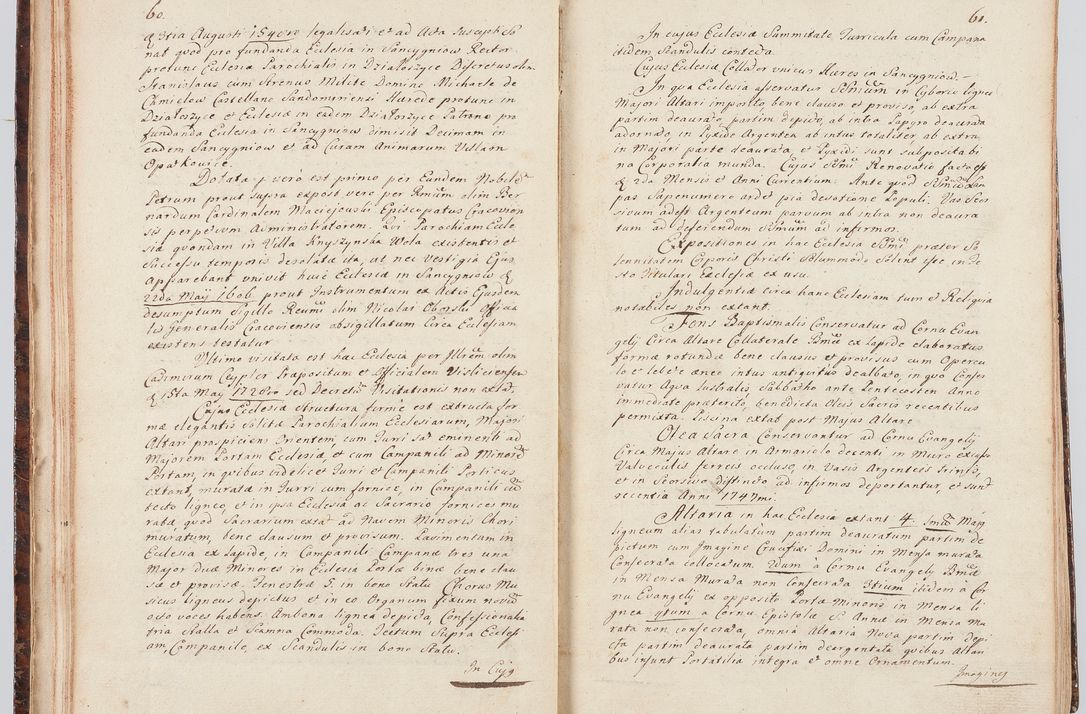 60.
& 3tia Augusti 1540mo legalisari et ad Acta suscepti so
nat quod pro fundanda Ecclesia in Sancygniow Rector
pretunc Ecclesiæ Parochialis in Działoszyce Discretus olim
Stanislaus cum Strenuo Milite Domino Michaele de
Camielow Castellano Sandomiriensi Hærede protunc in
Działoszyce et Ecclesiæ in eadem Działoszyce Patrono pro
fundanda Ecclesia in Sancygniow dimisit Decimam in
eadem Sancygniow et ad Curam Animarum Villam
Opatkowice.
Dotata vero est primo per Eundem Nobilem
Petrum prout supra expost vero per Rmum olim Ber
nardum Cardinalem Maciejouski Episcopatus Cracovien
sis perpetum Administratorem. Qui Parochiam Eccle
siæ quondam in Villa Knyszynska Wola existentis et
Successu temporis desolatæ ita, ut nec vestigia Ejus
apparebant univit huic Ecclesiæ in Sancygniow &
22da May 1606 prout Instrumentum ex Actis Ejusdem
desumptum Sigillo Reumi olim Nicolai Oborski Officia
lis generalis Cracoviensis absigillatum Circa Ecclesiam
existens testatur.
Ultimo visitata est hac Ecclesia per Illrem olim
Casimirum Ceypler Præpositum et Officialem Visliciensem
& 15ta May 1728vo sed Decretum Visitationis non extat.
Cujus Ecclesiæ structura formæ est extructa for
mæ elegantis solitæ Parochialium Ecclesiarum, Majori
Altari prospiciens Orientem, cum Turri satis eminenti ad
Majorem Portam Ecclesiæ et cum Campanili ad Minorem
Portam, in quibus videlicet Turri et Campanili Porticus
extant, muratæ in Turri cum fornice, in Campanili cum
tecto ligneo, et in ipsa Ecclesia ac Sacrario fornices mu
ratæ, quod Sacrarium extat ad Navem Minoris Chori
muratum, bene clausum et provisum. Pavimentum in
Ecclesia ex lapide, in Campanili Campanæ tres una
Major duæ Minores in Ecclesia Portæ binæ bene clau
sæ et provisæ. Fenestræ 5. in bono Statu. Chorus Mu
sicus ligneus depictus et in eo Organum fixum novum
octo voces habens. Ambona lignea depicta, Confessionalia
tria Stalla et Scamna Commoda. Tectum supra Ecclesi
am, Campanile, ex Scandulis in bono Statu.
In Cujq
61.
In cujus Ecclesiæ Summitate Turricula cum Campana
itidem Scandulis contecta.
Cujus Ecclesiæ Collator unicus Hæres in Sancygniow.
In qua Ecclesia asservatur SSmum in Cyborio ligneo
Majori Altari imposito bene clauso et proviso, ab extra
partim deaurato, partim depicto, ab intra Papyro deaurata
adornato, in Pyxide Argentea ab intus totaliter ab extra
in Majori parte deaurata, et Pyxidi sunt supposita bi
na Corporalia munda. Cujus SSmi Renovatio facta est
& 2da Mensis et Anni Currentium. Ante quod SSmum Lam
pas Sapenumero ardet pia devotione Populi. Vas Seor
sivum adest Argenteum parvum ab intra non deaura
tum ad deferendum SSmum ad infirmos.
Expositiones in hac Ecclesia SSmi præter So
lennitatem Corporis Christi Solummodo Solent esse in Fe
sto titulari Ecclesiæ ex usu.
Indulgentiæ circa hanc Ecclesiam tum et Reliquiæ
notabiles non extant.
Fons Baptismalis Conservatur ad Cornu Evan
gelij Circa Altare Collaterale Bmæ ex lapide elaboratus
formæ rotundæ bene clausus et provisus cum Opercu
lo et lebete æneo intus antiquitus dealbato, in quo Conser
vatur Aqua lustralis, Sabbatho ante Pentecosten anno
immediate præterito, benedicta Oleis Sacris recentibus
permixta. Piscina extat post Majus Altare.
Olea Sacra Conservantur ad Cornu Evangelij
Circa Majus Altare in Armariolo decenti in Muro exciso
Valveculis ferreis occluso, in Vasis Argenteis trinis,
et in Seorsivo distincto ad infirmos deportantur, et sunt
recentia Anni 1747mi.
Altaria in hac Ecclesia extant 4. 1mum Majus
ligneum alias tabulatum partim deauratum partim de
pictum cum Imagine Crucifixi Domini in Mensa murata
Consecrata collocatum. 2dum a Cornu Evangelij Bmæ
in Mensa Murata non Consecrata 3tium ibidem a Cor
nu Evangelij ex opposito Portæ Minoris in Mensa li
gnea 4tum a Cornu Epistolæ S. Annæ in Mensa Mu
rata non consecrata, omnia Altaria Nova partim depi
cta partim deaurata partim deargentata quibus Altari
bus insunt Portatilia integra et omne Ornamentum.
Imagines